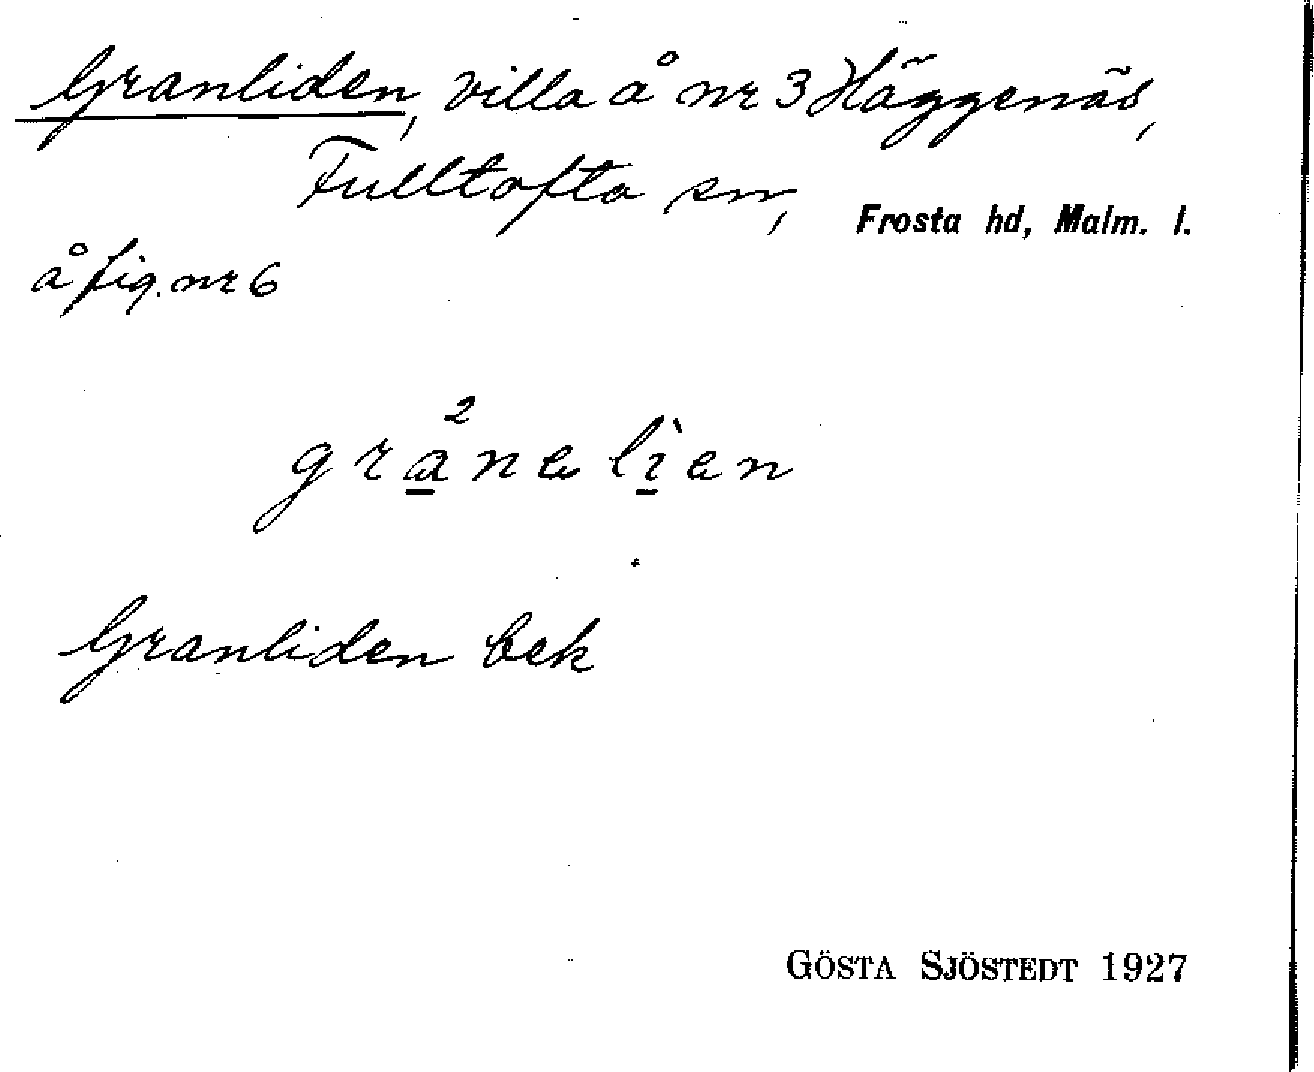 Granliden, villa å nr 3 Häggenäs,
Fulltofta sn, Frosta hd, Malm. l.
å fig. nr 6
Granliden bek
GÖSTA SJÖSTEDT 1927